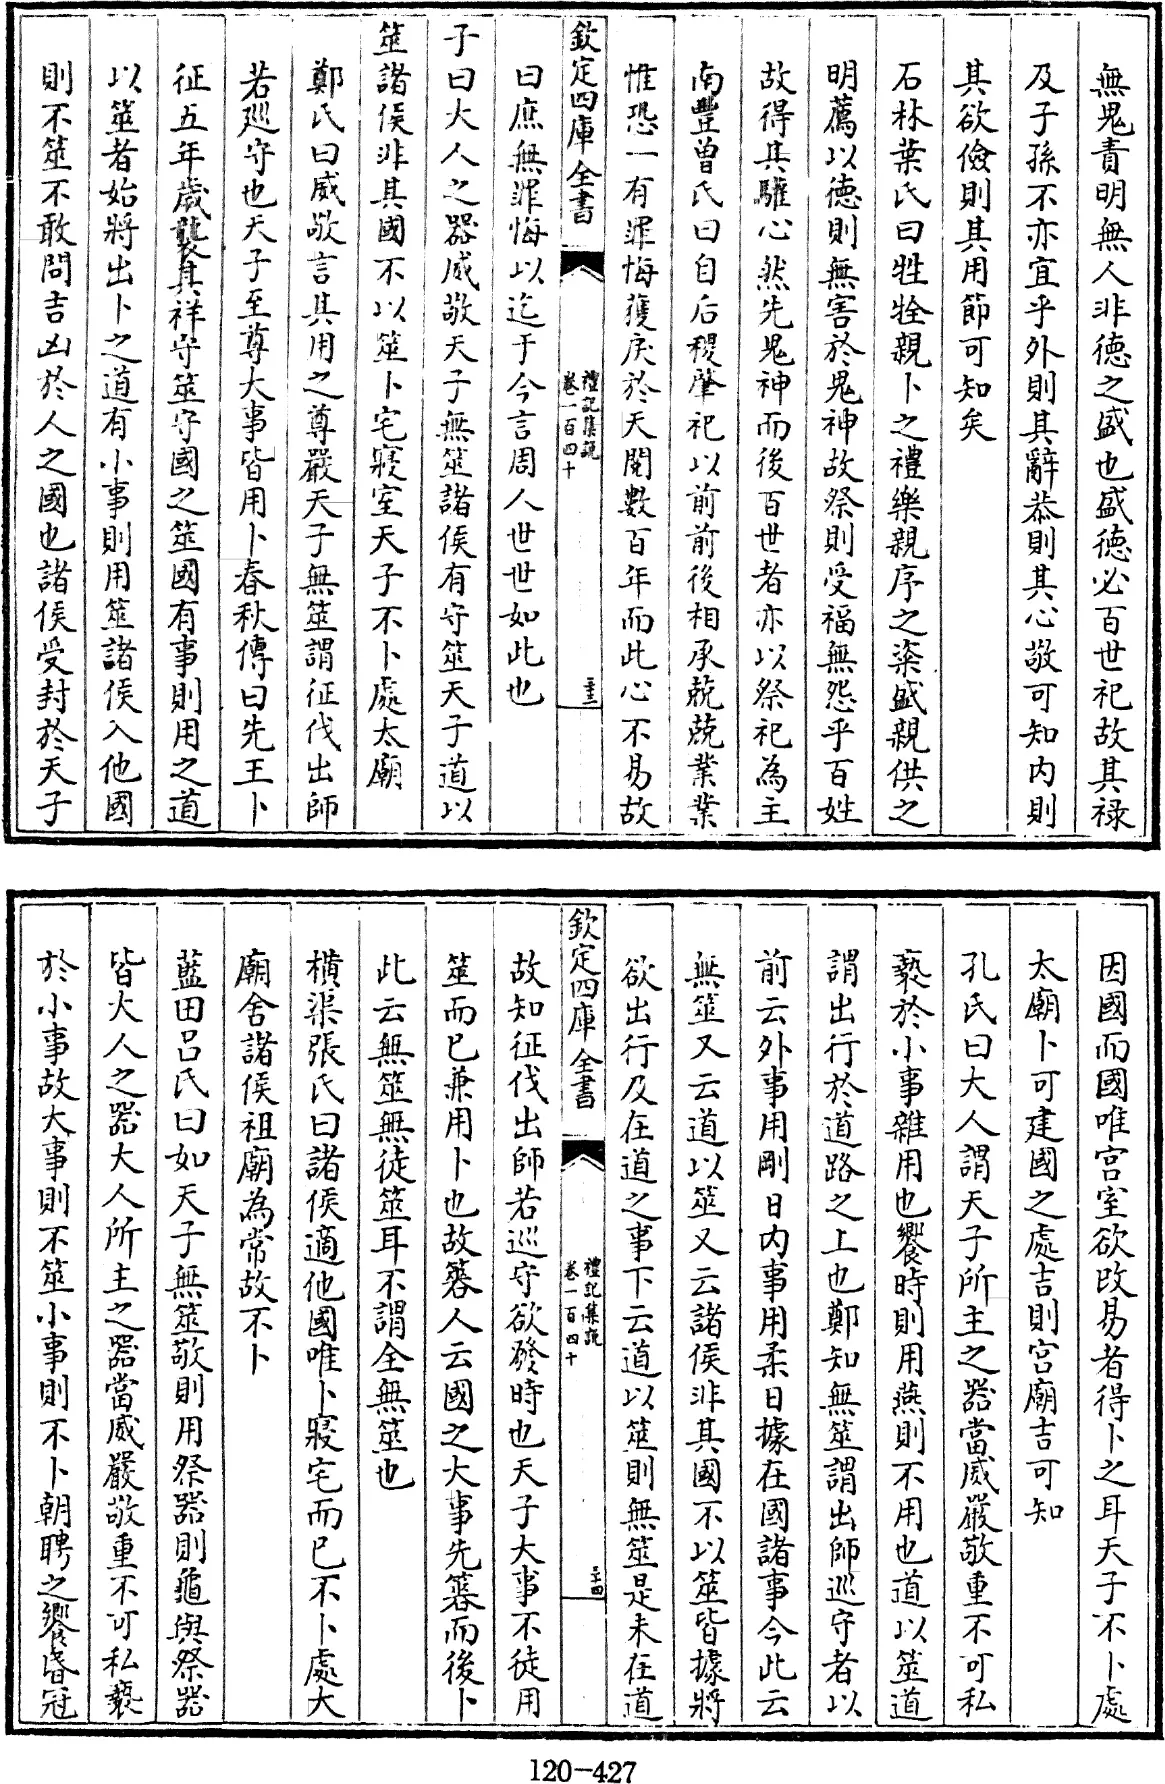 無鬼責明無人非德之盛也盛德必百世祀故其祿
及子孫不亦宜乎外則其辭恭則其心敬可知内則
其欲儉則其用節可知矣
石林葉氏曰牲牷親卜之禮樂親序之粢盛親供之
明薦以德則無害於鬼神故祭則受福無怨乎百姓
故得其驩心然先鬼神而後百世者亦以祭祀為主
南豐曾氏曰自后稷肇祀以前前後相承兢兢業業
惟恐一有罪悔獲戾於天閱數百年而此心不易故
欽定四庫全書
禮記集說
卷一百四十
三十三
曰庶無罪悔以迄于今言周人世世如此也
子曰大人之器威敬天子無筮諸侯有守筮天子道以
筮諸侯非其國不以筮卜宅寢室天子不卜處太廟
鄭氏曰威敬言其用之尊嚴天子無筮謂征伐出師
若廵守也天子至尊大事皆用卜春秋傳曰先王卜
征五年歲襲其祥守筮守國之筮國有事則用之道
以筮者始將出卜之道有小事則用筮諸侯入他國
則不筮不敢問吉凶於人之國也諸侯受封於天子
因國而國唯宫室欲改易者得卜之耳天子不卜處
太廟卜可建國之處吉則宫廟吉可知
孔氏曰大人謂天子所主之器當威嚴敬重不可私
褻於小事雜用也饗時則用燕則不用也道以筮道
謂出行於道路之上也鄭知無筮謂出師巡守者以
前云外事用剛日内事用柔日據在國諸事今此云
無筮又云道以筮又云諸侯非其國不以筮皆據將
欲出行及在道之事下云道以筮則無筮是未在道
欽定四庫全書
禮記集說
卷一百四十
三十四
故知征伐出師若巡守欲發時也天子大事不徒用
筮而已兼用卜也故簭人云國之大事先簭而後卜
此云無筮無徒筮耳不謂全無筮也
橫渠張氏曰諸侯適他國唯卜寢宅而已不卜處大
廟舍諸侯祖廟為常故不卜
藍田吕氏曰如天子無筮敬則用祭器則龜與祭器
皆大人之器大人所主之器當威嚴敬重不可私褻
於小事故大事則不筮小事則不卜朝聘之饗昏冠
120-427